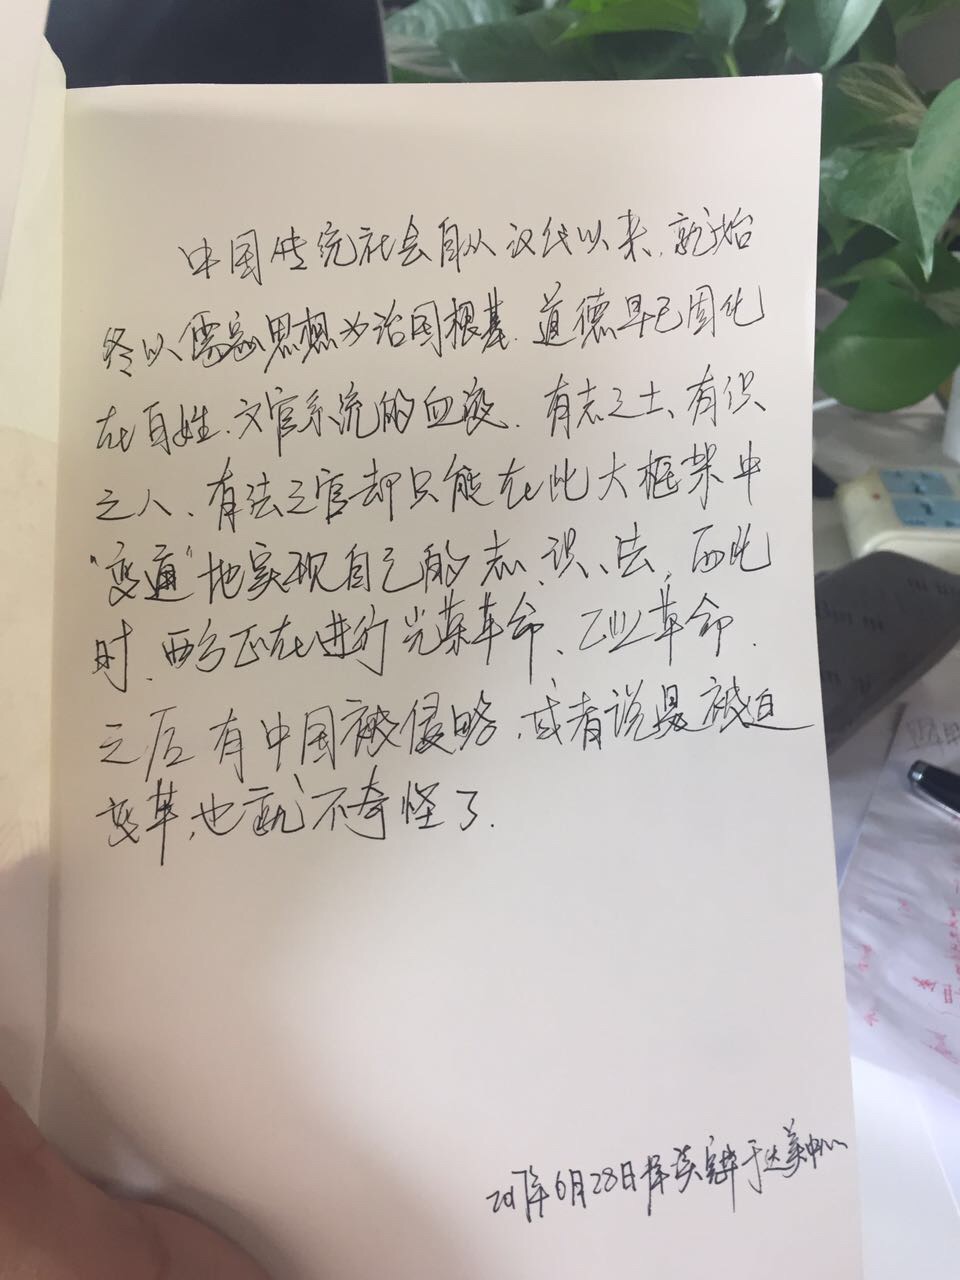 中国传统社会自从汉代以来，就始
终以儒家思想为治国根基．道德早已固化
在百姓、文官系统的血液．有志之士、有识
之人、有法之官却只能在此大框架中
“变通”地实现自己的志、识、法，而此
时，西方正在进行光荣革命、工业革命．
之后有中国被侵略，或者说是被迫
变革，也就不奇怪了．
2017年6月28日 读 于达美中心